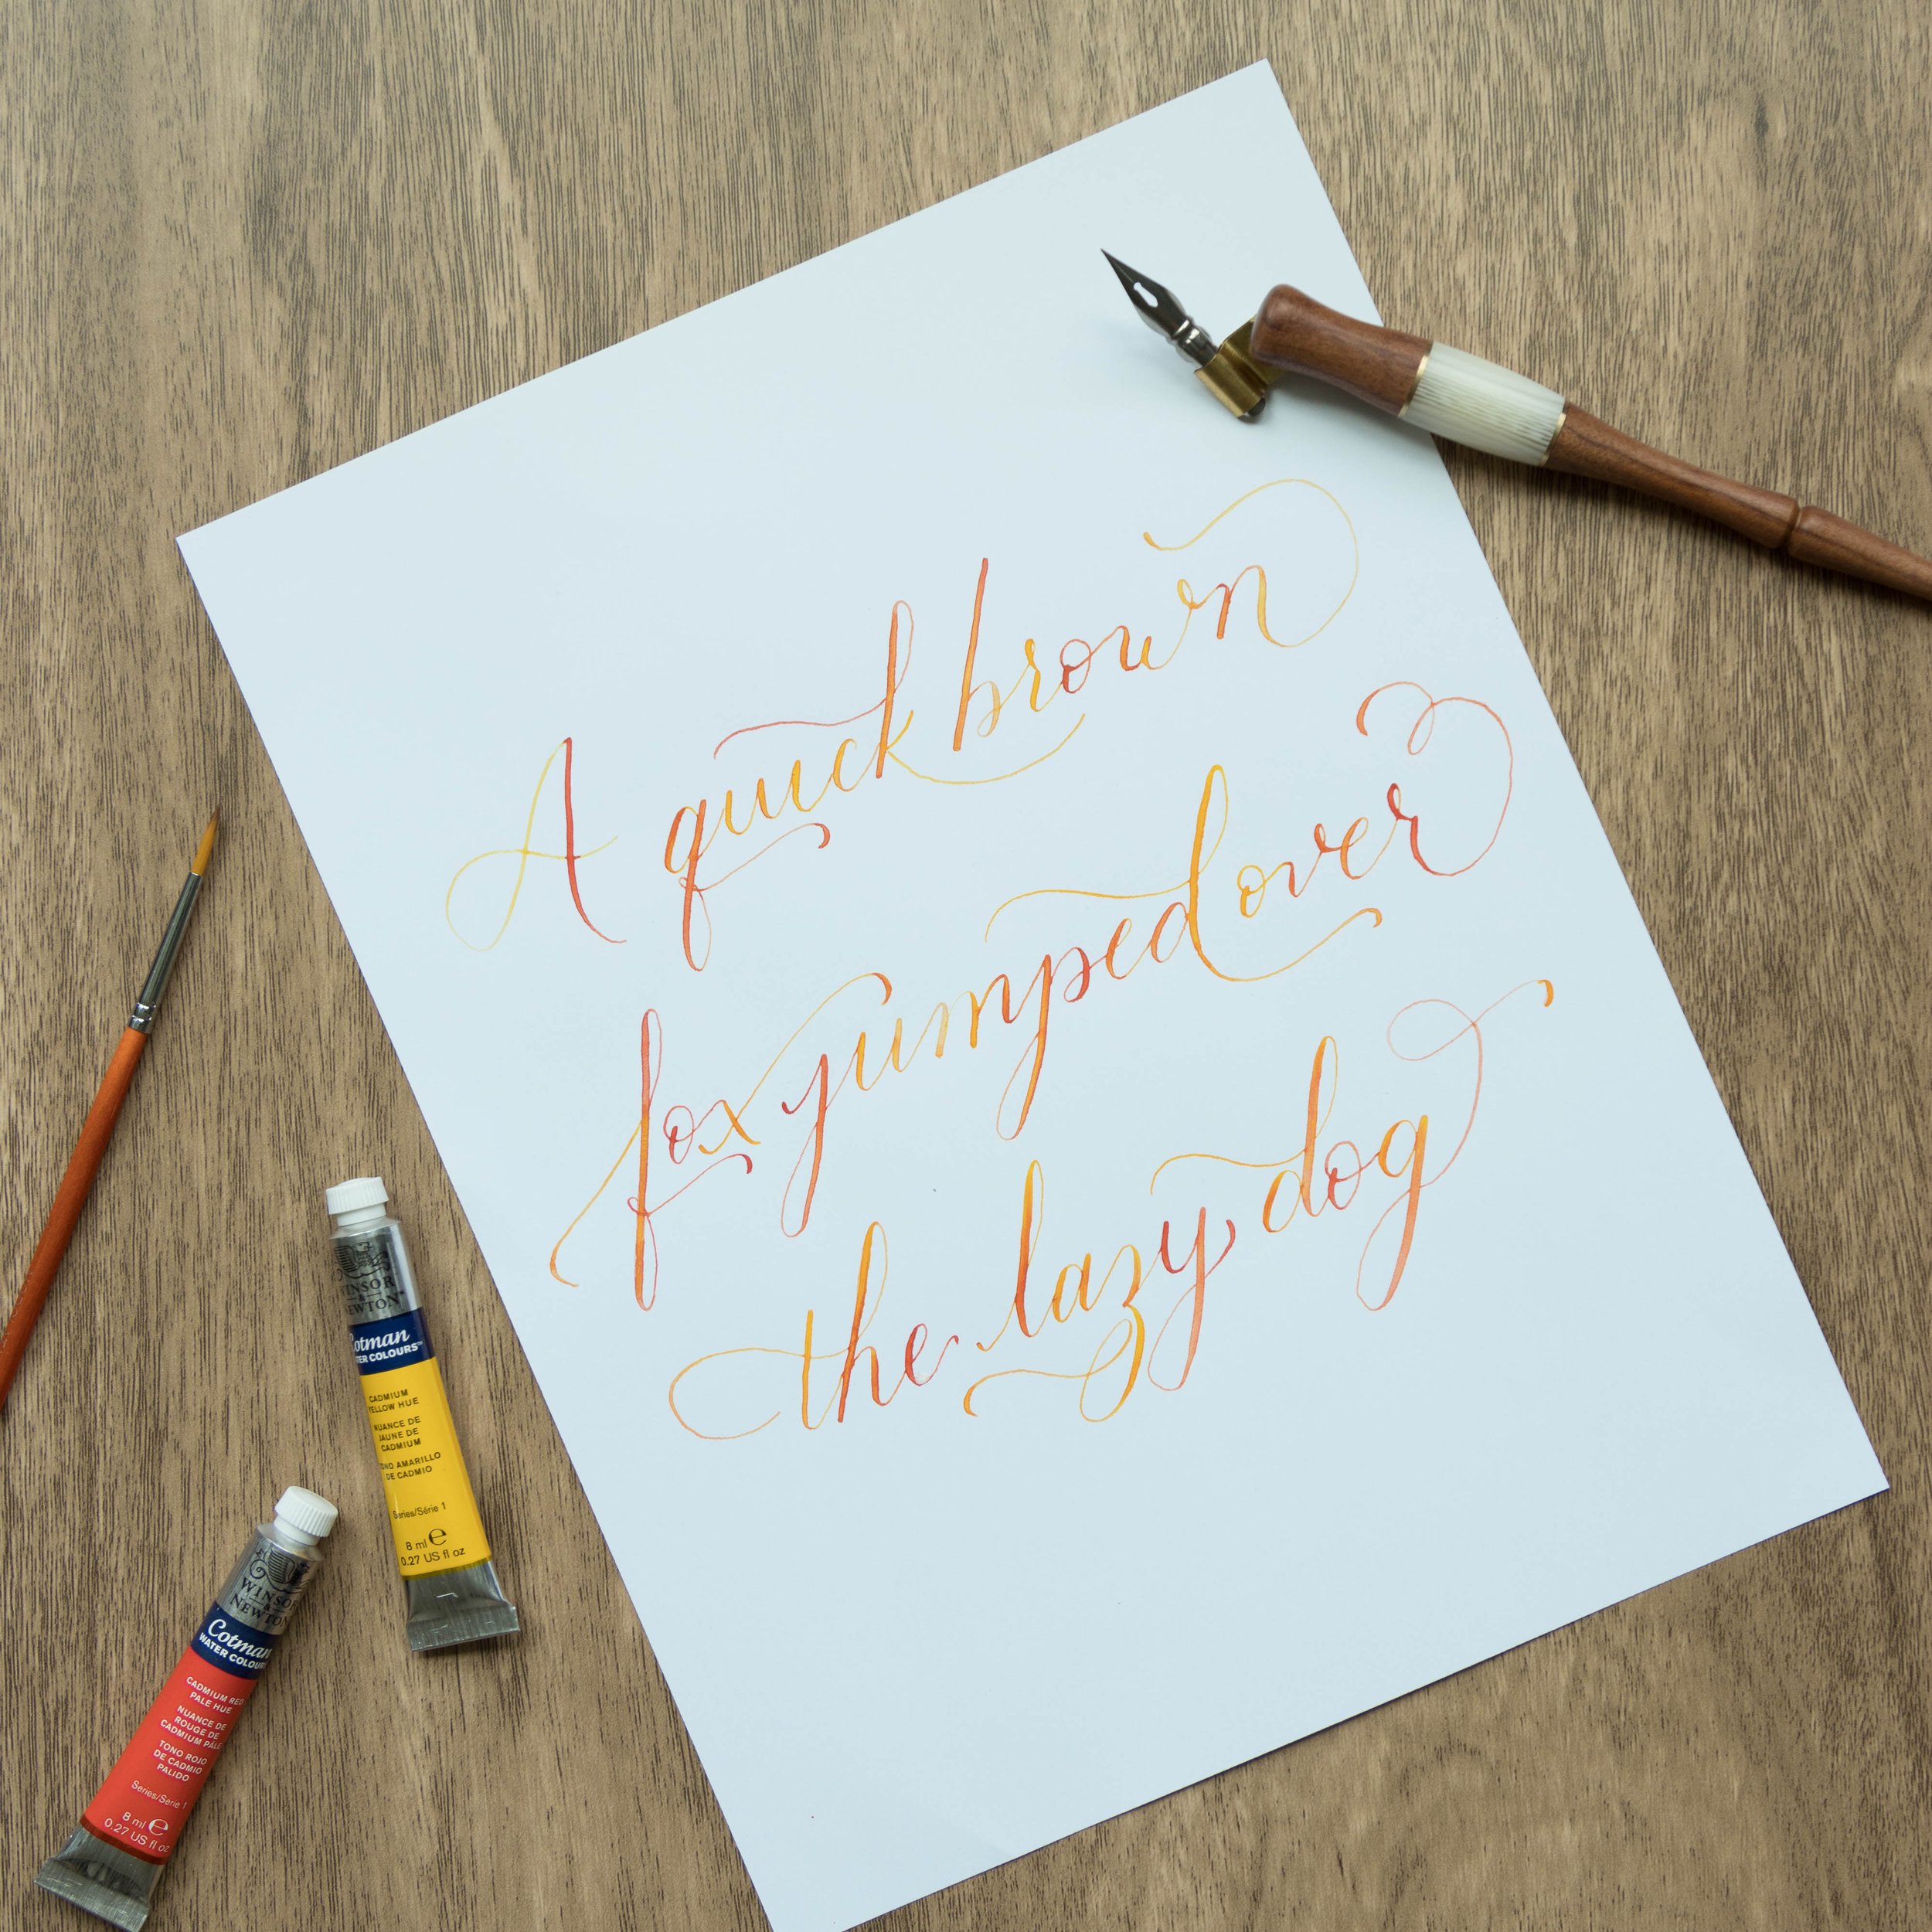 A quick brown
fox jumped over
the lazy dog
WINSOR
&
NEWTON™
Cotman
WATER COLOURS™
CADMIUM
YELLOW HUE
NUANCE DE
JAUNE DE
CADMIUM
TONO AMARILLO
DE CADMIO
Series/Série 1
8 ml ℮
0.27 US fl oz
WINSOR
&
NEWTON
Cotman
WATER COLOURS
CADMIUM RED
PALE HUE
NUANCE DE
ROUGE DE
CADMIUM PALE
TONO ROJO
DE CADMIO
PALIDO
Series/Serie 1
8 ml ℮
0.27 US fl oz